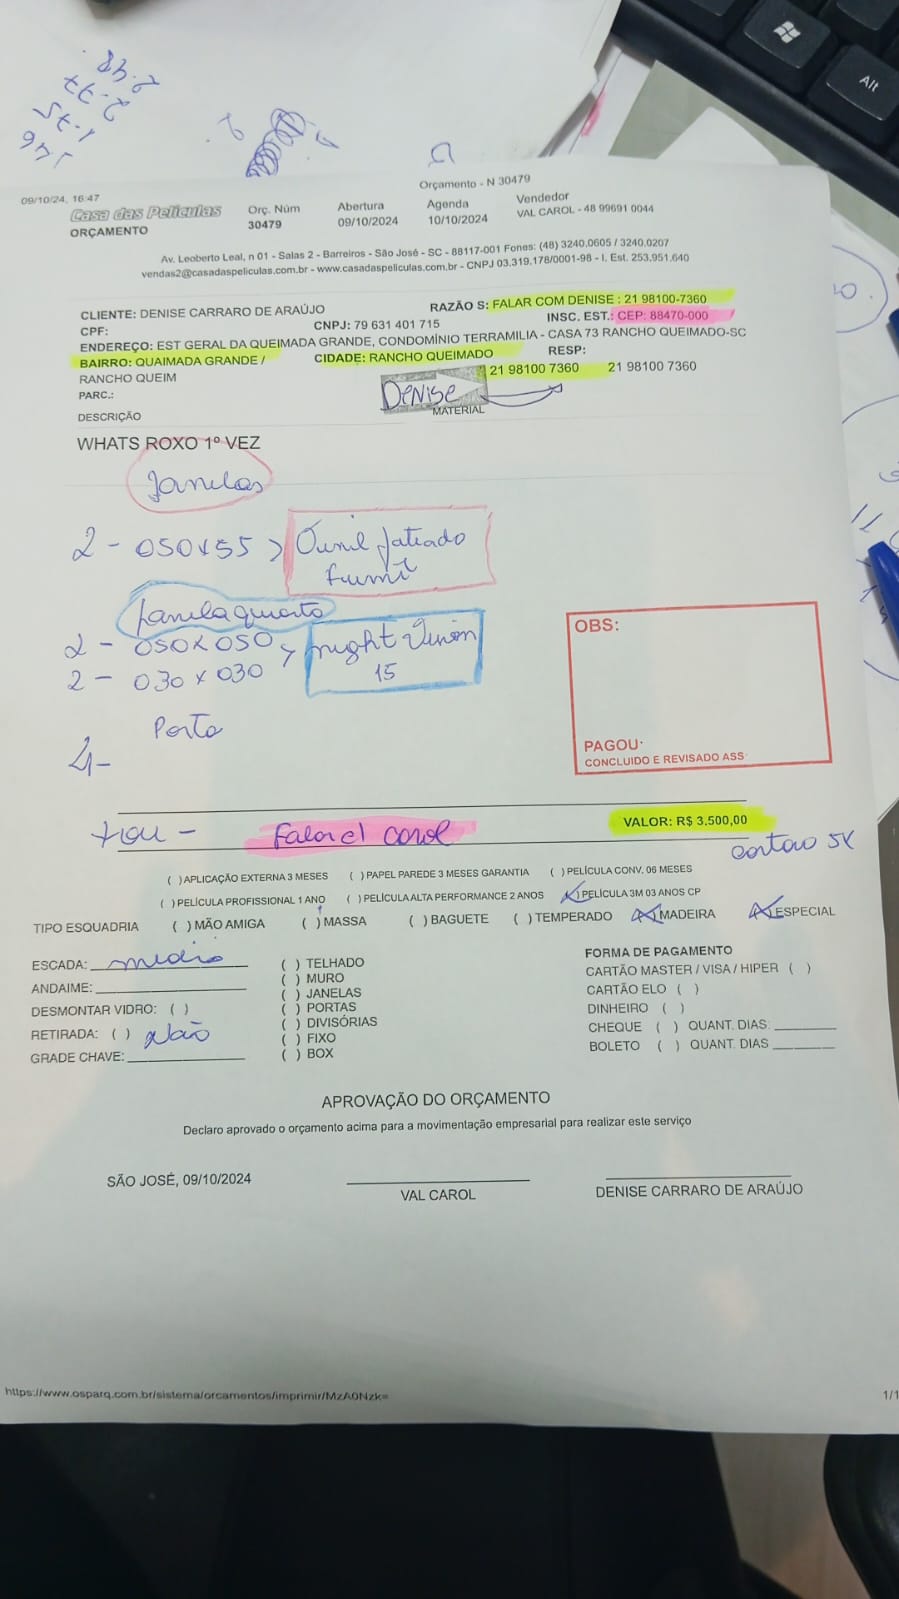 2.48
2.77
1.75
1.46
Alt
09/10/24, 16:47
Orçamento - N 30479
Casa das Películas
ORÇAMENTO
Orç. Núm
30479
Abertura
09/10/2024
Agenda
10/10/2024
Vendedor
VAL CAROL - 48 99691 0044
Av. Leoberto Leal, n 01 - Salas 2 - Barreiros - São José - SC - 88117-001 Fones: (48) 3240.0605 / 3240.0207
vendas2@casadaspeliculas.com.br - www.casadaspeliculas.com.br - CNPJ 03.319.178/0001-98 - I. Est. 253.951.640
CLIENTE: DENISE CARRARO DE ARAÚJO RAZÃO S: FALAR COM DENISE : 21 98100-7360
CPF: CNPJ: 79 631 401 715 INSC. EST.: CEP: 88470-000
ENDEREÇO: EST GERAL DA QUEIMADA GRANDE, CONDOMÍNIO TERRAMILIA - CASA 73 RANCHO QUEIMADO-SC
BAIRRO: QUAIMADA GRANDE / CIDADE: RANCHO QUEIMADO RESP:
RANCHO QUEIM 21 98100 7360 21 98100 7360
PARC.: DENISE
DESCRIÇÃO MATERIAL
WHATS ROXO 1º VEZ
Janelas
2 - 050x55 > jateado
fumê
Janela quarto
2 - 050x050 > night vision
2 - 030 x 030 15
Porta
4-
OBS:
PAGOU:
CONCLUIDO E REVISADO ASS
Falar c/ Carol
VALOR: R$ 3.500,00
cartão 5X
( )APLICAÇÃO EXTERNA 3 MESES ( ) PAPEL PAREDE 3 MESES GARANTIA ( ) PELÍCULA CONV. 06 MESES
( )PELÍCULA PROFISSIONAL 1 ANO ( )PELÍCULA ALTA PERFORMANCE 2 ANOS (X)PELÍCULA 3M 03 ANOS CP
TIPO ESQUADRIA ( ) MÃO AMIGA ( ) MASSA ( ) BAGUETE ( ) TEMPERADO (X)MADEIRA (X)ESPECIAL
ESCADA: média
ANDAIME:
DESMONTAR VIDRO: ( )
RETIRADA: ( ) Não
GRADE CHAVE:
( ) TELHADO
( ) MURO
( ) JANELAS
( ) PORTAS
( ) DIVISÓRIAS
( ) FIXO
( ) BOX
FORMA DE PAGAMENTO
CARTÃO MASTER / VISA / HIPER ( )
CARTÃO ELO ( )
DINHEIRO ( )
CHEQUE ( ) QUANT. DIAS.
BOLETO ( ) QUANT. DIAS
APROVAÇÃO DO ORÇAMENTO
Declaro aprovado o orçamento acima para a movimentação empresarial para realizar este serviço
SÃO JOSÉ, 09/10/2024
VAL CAROL
DENISE CARRARO DE ARAÚJO
https://www.osparq.com.br/sistema/orcamentos/imprimir/MzA0Nzk=
1/1